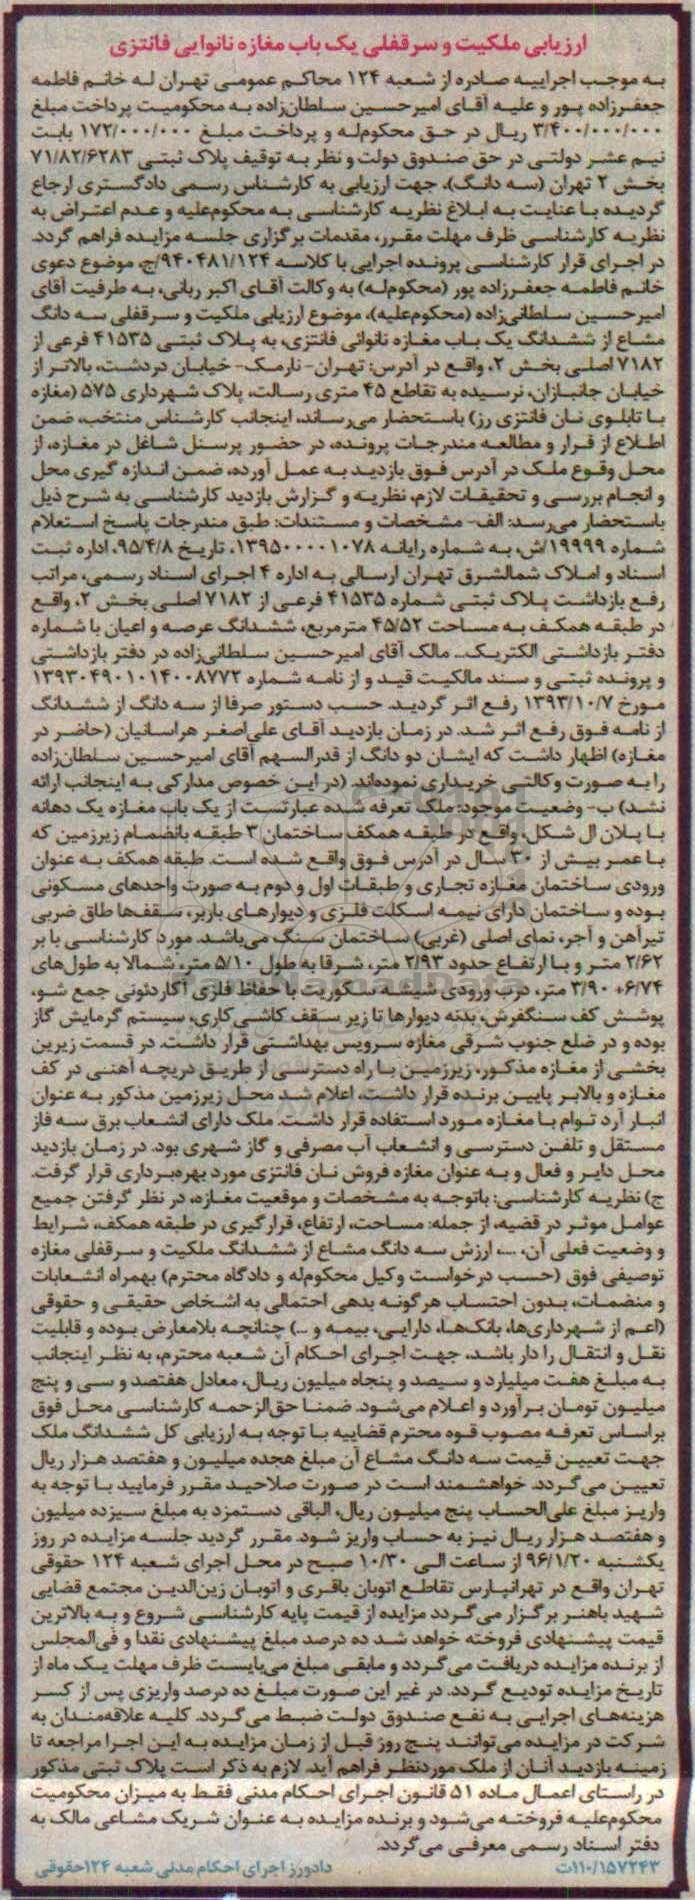 ارزیابی ملکیت و سرقفلی یک باب مغازه نانوایی فانتزی
به موجب اجراییه صادره از شعبه ۱۲۴ محاکم عمومی تهران له خانم فاطمه
جعفرزاده پور و علیه آقای امیرحسین سلطان‌زاده به محکومیت پرداخت مبلغ
۳/۴۰۰/۰۰۰/۰۰۰ ریال در حق محکوم‌له و پرداخت مبلغ ۱۷۲/۰۰۰/۰۰۰ بابت
نیم عشر دولتی در حق صندوق دولت و نظر به توقیف پلاک ثبتی ۷۱/۸۲/۶۲۸۳
بخش ۲ تهران (سه دانگ)، جهت ارزیابی به کارشناس رسمی دادگستری ارجاع
گردیده با عنایت به ابلاغ نظریه کارشناسی به محکوم‌علیه و عدم اعتراض به
نظریه کارشناسی ظرف مهلت مقرر، مقدمات برگزاری جلسه مزایده فراهم گردد.
در اجرای قرار کارشناسی پرونده اجرایی با کلاسه ۹۴۰۴۸۱/۱۲۴/ج، موضوع دعوی
خانم فاطمه جعفرزاده پور (محکوم‌له) به وکالت آقای اکبر ربانی، به طرفیت آقای
امیرحسین سلطانی‌زاده (محکوم‌علیه)، موضوع ارزیابی ملکیت و سرقفلی سه دانگ
مشاع از ششدانگ یک باب مغازه نانوائی فانتزی، به پلاک ثبتی ۴۱۵۳۵ فرعی از
۷۱۸۲ اصلی بخش ۲، واقع در آدرس: تهران- نارمک- خیابان دردشت، بالاتر از
خیابان جانبازان، نرسیده به تقاطع ۴۵ متری رسالت، پلاک شهرداری ۵۷۵ (مغازه
با تابلوی نان فانتزی رز) باستحضار می‌رساند، اینجانب کارشناس منتخب، ضمن
اطلاع از قرار و مطالعه مندرجات پرونده، در حضور پرسنل شاغل در مغازه، از
محل وقوع ملک در آدرس فوق بازدید به عمل آورده، ضمن اندازه گیری محل
و انجام بررسی و تحقیقات لازم، نظریه و گزارش بازدید کارشناسی به شرح ذیل
باستحضار می‌رسد: الف- مشخصات و مستندات: طبق مندرجات پاسخ استعلام
شماره ۱۹۹۹۹/ش، به شماره رایانه ۱۳۹۵۰۰۰۰۱۰۷۸، تاریخ ۹۵/۴/۸، اداره ثبت
اسناد و املاک شمالشرق تهران ارسالی به اداره ۴ اجرای اسناد رسمی، مراتب
رفع بازداشت پلاک ثبتی شماره ۴۱۵۳۵ فرعی از ۷۱۸۲ اصلی بخش ۲، واقع
در طبقه همکف به مساحت ۴۵/۵۲ مترمربع، ششدانگ عرصه و اعیان با شماره
دفتر بازداشتی الکتریک... مالک آقای امیرحسین سلطانی‌زاده در دفتر بازداشتی
و پرونده ثبتی و سند مالکیت قید و از نامه شماره ۱۳۹۳۰۴۹۰۱۰۱۴۰۰۸۷۷۲
مورخ ۱۳۹۳/۱۰/۷ رفع اثر گردید. حسب دستور صرفا از سه دانگ از ششدانگ
از نامه فوق رفع اثر شد. در زمان بازدید آقای علی‌اصغر هراسانیان (حاضر در
مغازه) اظهار داشت که ایشان دو دانگ از قدرالسهم آقای امیرحسین سلطان‌زاده
را به صورت وکالتی خریداری نموده‌اند. (در این خصوص مدارکی به اینجانب ارائه
نشد) ب- وضعیت موجود: ملک تعرفه شده عبارتست از یک باب مغازه یک دهانه
با پلان ال شکل، واقع در طبقه همکف ساختمان ۳ طبقه بانضمام زیرزمین که
با عمر بیش از ۳۰ سال در آدرس فوق واقع شده است. طبقه همکف به عنوان
ورودی ساختمان مغازه تجاری و طبقات اول و دوم به صورت واحدهای مسکونی
بوده و ساختمان دارای نیمه اسکلت فلزی و دیوارهای باربر، سقف‌ها طاق ضربی
تیرآهن و آجر، نمای اصلی (غربی) ساختمان سنگ می‌باشد. مورد کارشناسی با بر
۲/۶۲ متر و با ارتفاع حدود ۲/۹۳ متر، شرقا به طول ۵/۱۰ متر، شمالا به طول‌های
۶/۷۴+ ۳/۹۰ متر، درب ورودی شیشه سکوریت با حفاظ فلزی آکاردئونی جمع شو،
پوشش کف سنگفرش، بدنه دیوارها تا زیر سقف کاشی‌کاری، سیستم گرمایش گاز
بوده و در ضلع جنوب شرقی مغازه سرویس بهداشتی قرار داشت. در قسمت زیرین
بخشی از مغازه مذکور، زیرزمین با راه دسترسی از طریق دریچه آهنی در کف
مغازه و بالابر پایین برنده قرار داشت، اعلام شد محل زیرزمین مذکور به عنوان
انبار آرد توام با مغازه مورد استفاده قرار داشت. ملک دارای انشعاب برق سه فاز
مستقل و تلفن دسترسی و انشعاب آب مصرفی و گاز شهری بود. در زمان بازدید
محل دایر و فعال و به عنوان مغازه فروش نان فانتزی مورد بهره‌برداری قرار گرفت.
ج) نظریه کارشناسی: باتوجه به مشخصات و موقعیت مغازه، در نظر گرفتن جمیع
عوامل موثر در قضیه، از جمله: مساحت، ارتفاع، قرارگیری در طبقه همکف، شرایط
و وضعیت فعلی آن، ...، ارزش سه دانگ مشاع از ششدانگ ملکیت و سرقفلی مغازه
توصیفی فوق (حسب درخواست وکیل محکوم‌له و دادگاه محترم) بهمراه انشعابات
و منضمات، بدون احتساب هرگونه بدهی احتمالی به اشخاص حقیقی و حقوقی
(اعم از شهرداری‌ها، بانک‌ها، دارایی، بیمه و ...) چنانچه بلامعارض بوده و قابلیت
نقل و انتقال را دار باشد، جهت اجرای احکام آن شعبه محترم، به نظر اینجانب
به مبلغ هفت میلیارد و سیصد و پنجاه میلیون ریال، معادل هفتصد و سی و پنج
میلیون تومان برآورد و اعلام می‌شود. ضمنا حق‌الزحمه کارشناسی محل فوق
براساس تعرفه مصوب قوه محترم قضاییه با توجه به ارزیابی کل ششدانگ ملک
جهت تعیین قیمت سه دانگ مشاع آن مبلغ هجده میلیون و هفتصد هزار ریال
تعیین می‌گردد. خواهشمند است در صورت صلاحدید مقرر فرمایید با توجه به
واریز مبلغ علی‌الحساب پنج میلیون ریال، الباقی دستمزد به مبلغ سیزده میلیون
و هفتصد هزار ریال نیز به حساب واریز شود. مقرر گردید جلسه مزایده در روز
یکشنبه ۹۶/۱/۲۰ از ساعت الی ۱۰/۳۰ صبح در محل اجرای شعبه ۱۲۴ حقوقی
تهران واقع در تهرانپارس تقاطع اتوبان باقری و اتوبان زین‌الدین مجتمع قضایی
شهید باهنر برگزار می‌گردد مزایده از قیمت پایه کارشناسی شروع و به بالاترین
قیمت پیشنهادی فروخته خواهد شد ده درصد مبلغ پیشنهادی نقدا و فی‌المجلس
از برنده مزایده دریافت می‌گردد و مابقی مبلغ می‌بایست ظرف مهلت یک ماه از
تاریخ مزایده تودیع گردد. در غیر این صورت مبلغ ده درصد واریزی پس از کسر
هزینه‌های اجرایی به نفع صندوق دولت ضبط می‌گردد. کلیه علاقه‌مندان به
شرکت در مزایده می‌توانند پنج روز قبل از زمان مزایده به این اجرا مراجعه تا
زمینه بازدید آنان از ملک موردنظر فراهم آید. لازم به ذکر است پلاک ثبتی مذکور
در راستای اعمال ماده ۵۱ قانون اجرای احکام مدنی فقط به میزان محکومیت
محکوم‌علیه فروخته می‌شود و برنده مزایده به عنوان شریک مشاعی مالک به
دفتر اسناد رسمی معرفی می‌گردد.
۱۱۰/۱۵۷۲۴۳ت دادورز اجرای احکام مدنی شعبه ۱۲۴حقوقی